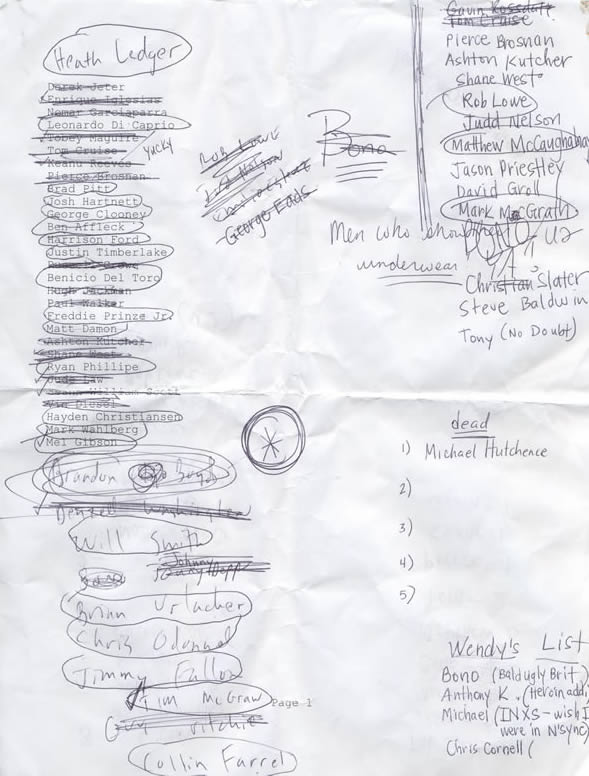 Heath Ledger
Derek Jeter
Enrique Iglesias
Nomar Garciaparra
Leonardo Di Caprio
Tobey Maguire
Tom Cruise
yucky
Keanu Reeves
Pierce Brosnan
Brad Pitt
Josh Hartnett
George Clooney
Ben Affleck
Harrison Ford
Justin Timberlake
Benicio Del Toro
Hugh Jackman
Paul Walker
Freddie Prinze Jr.
Matt Damon
Ashton Kutcher
Shane West
Ryan Phillipe
Jude Law
Seann William Scott
Vin Diesel
Hayden Christiansen
Mark Wahlberg
Mel Gibson
Brandon Boyd
Denzel Washington
Will Smith
Johnny Depp
Brian Urlacher
Chris Odonnel
Jimmy Fallon
Tim McGraw
Page 1
Guy Ritchie
Collin Farrel
Rob Lowe
Judd Nelson
George Eads
Bono
Men who show their
underwear
Gavin Rossdale
Tom Cruise
Pierce Brosnan
Ashton Kutcher
Shane West
Rob Lowe
Judd Nelson
Matthew McCaughahay
Jason Priestley
David Groll
Mark McGrath
U2
Christian Slater
Steve Baldwin
Tony (No Doubt)
dead
1) Michael Hutchence
2)
3)
4)
5)
Wendy's List
Bono (Bald ugly Brit)
Anthony K. (Heroin addi
Michael (INXS - wish I
were in N'Sync)
Chris Cornell (